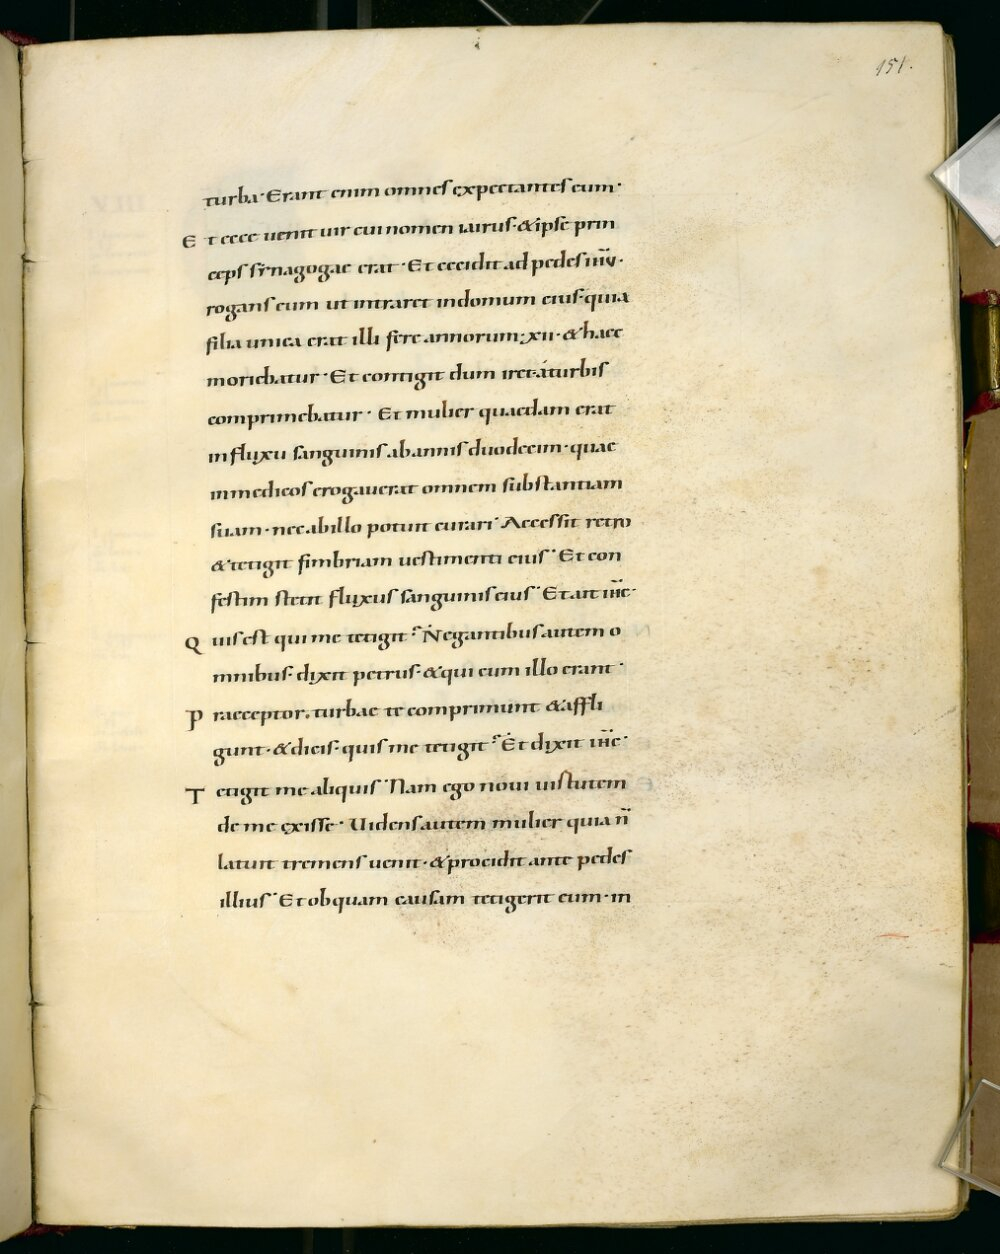 151.
turba· Erant enim omnes expectantes eum·
Et ecce uenit uir cui nomen iairus·&ipse prin
ceps synagogae erat· Et cecidit ad pedes ihu·
rogans eum ut intraret indomum eius·quia
filia unica erat illi fere annorum·xii·&haec
moriebatur· Et contigit dum iret·áturbis
comprimebatur· Et mulier quaedam erat
influxu sanguinis abannis duodecim·quae
inmedicos erogauerat omnem substantiam
suam·nec abillo potuit curari· Accessit retro
&tetigit fimbriam uestimenti eius· Et con
festim stetit fluxus sanguinis eius· Et ait ihc·
Quis est qui me tetigit? Negantibus autem o
mnibus·dixit petrus·&qui cum illo erant·
Praeceptor, turbae te comprimunt &affli
gunt·&dicis·quis me tetigit? Et dixit ihc·
Tetigit me aliquis· Nam ego noui uirtutem
de me exisse· Uidens autem mulier quia n̄
latuit tremens uenit·&procidit ante pedes
illius· Et ob quam causam tetigerit eum·in